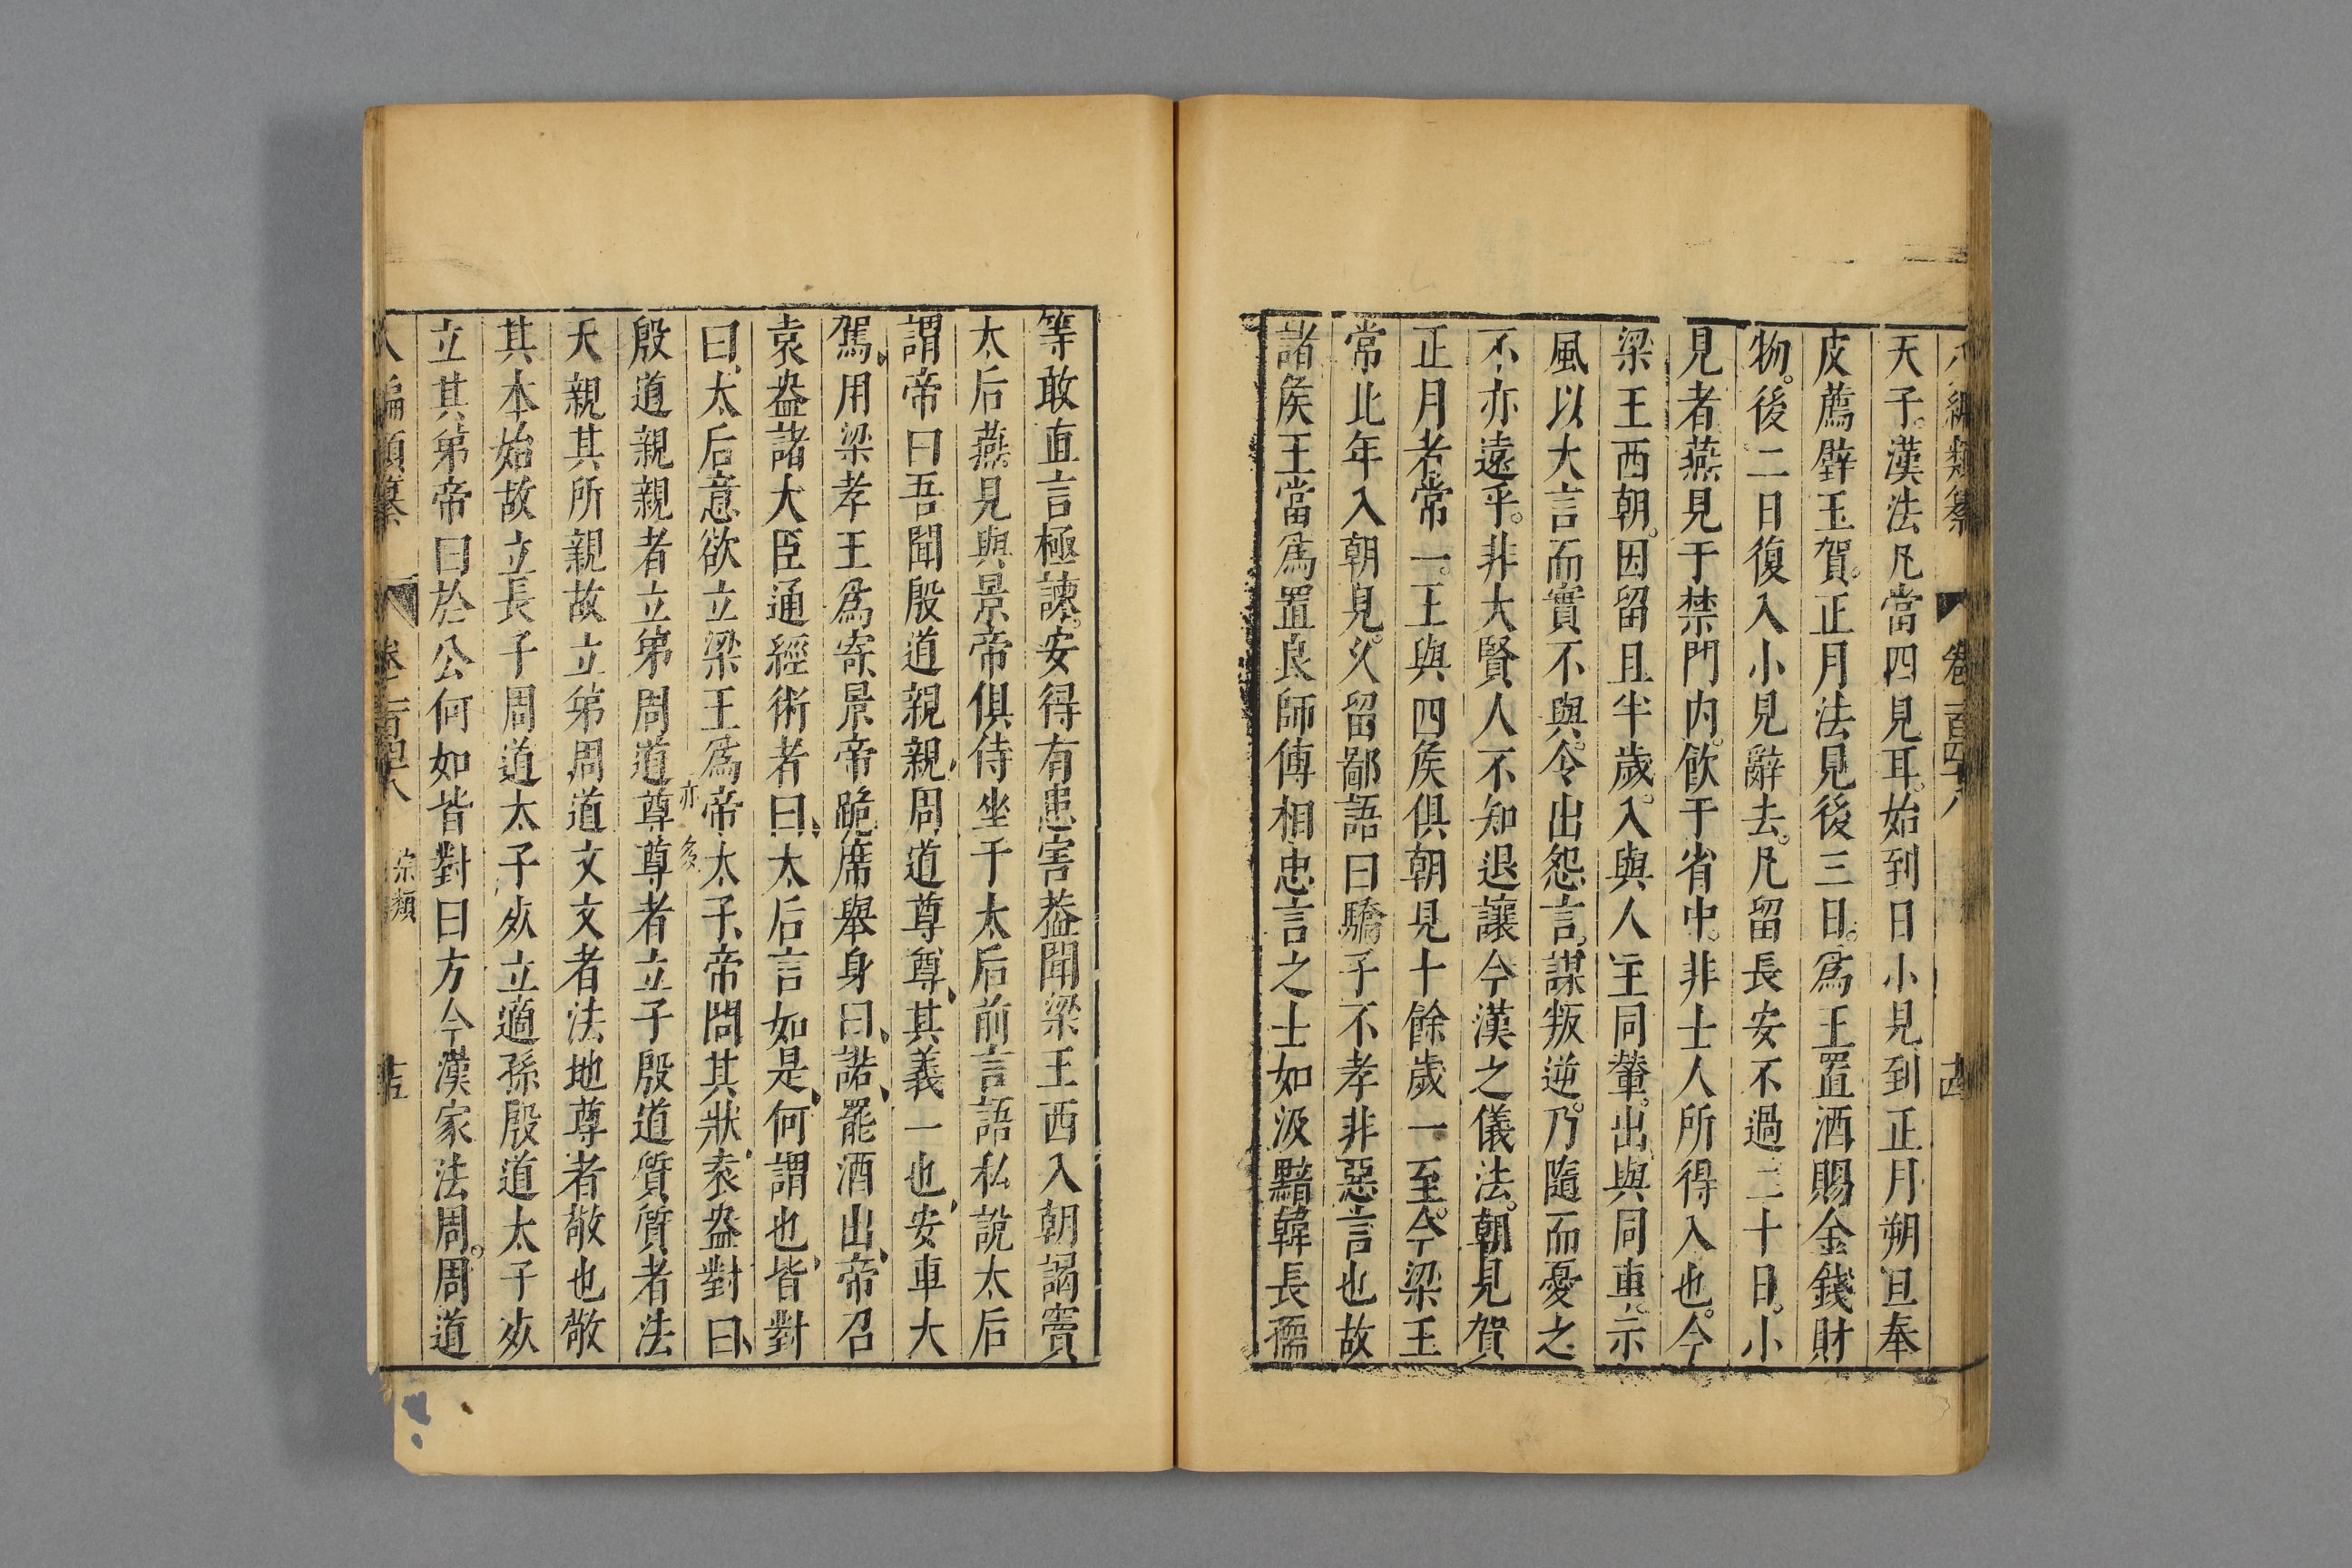 八編類纂 卷一百四十八 十四
天子。漢法凡當四見耳。始到日小見到正月朔旦奉
皮薦璧玉賀。正月法見後三日。爲王置酒賜金錢財
物。後二日復入小見辭去。凡留長安不過二十日。小
見者燕見于禁門内。飮于省中。非士人所得入也。今
梁王西朝。因留且半歲。入與人主同輦。出與同車。示
風以大言而實不與。令出怨言。謀叛逆。乃隨而憂之
不亦遠乎。非大賢人不知退讓今漢之儀法。朝見賀
正月者常一。王與四矦俱朝見十餘歲一至。今梁王
常比年入朝見。久留鄙語曰驕子不孝非惡言也故
諸矦王當爲置良師傅相忠言之士如汲黯韓長孺
等敢直言極諫。安得有患害葢聞梁王西入朝謁竇
太后燕見與景帝俱侍坐于太后前言語私說太后
謂帝曰吾聞殷道親親、周道尊尊、其義一也、安車大
駕、用梁孝王爲寄景帝跪席舉身曰、諾、罷酒出、帝召
袁盎諸大臣通經術者曰、太后言如是、何謂也、皆對
曰、太后意欲立梁王爲帝太子、帝問其狀、袁盎對曰、
亦多
殷道親親者立弟周道尊尊者立子殷道質質者法
天親其所親故立弟周道文文者法地尊者敬也敬
其本始故立長子周道太子死立適孫殷道太子死
立其弟帝曰於公何如皆對曰方今漢家法周。周道
八編類纂 卷一百四十八 宗類 十五